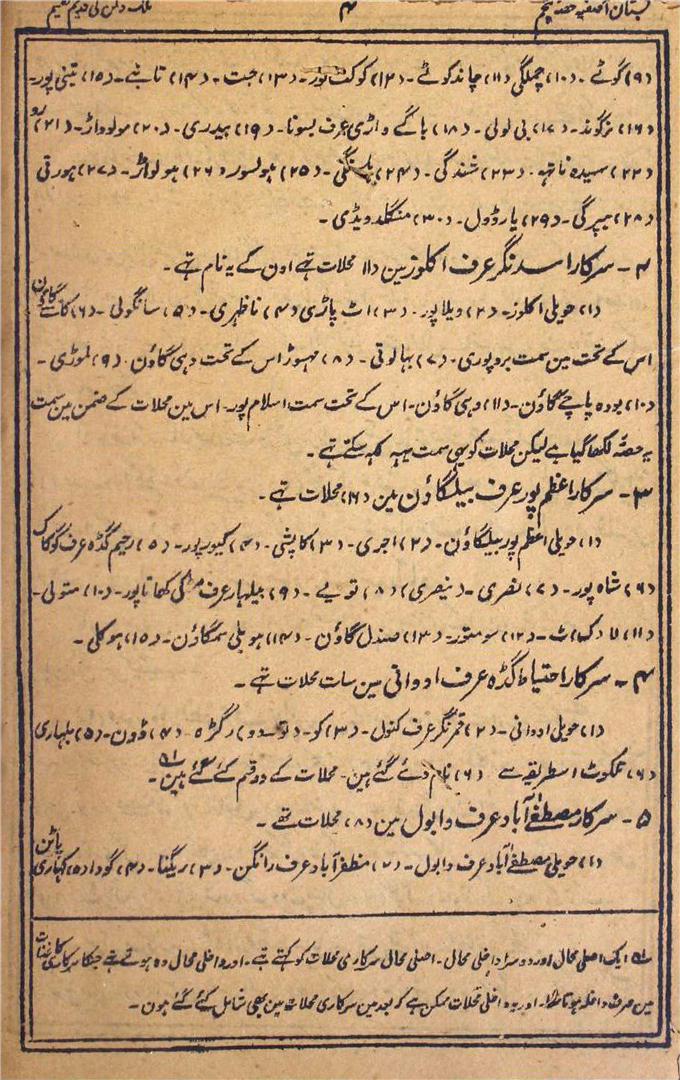 بستان آصفیہ حصہ پنجم ۴ ملک دکن کی قدیم تقسیم
(۹) گوٹے ۔ (۱۰) جملگی (۱۱) چاندکوٹے ۔ (۱۲) کوکٹ نور ۔ (۱۳) جت ۔ (۱۴) تانبے ۔ (۱۵) تینی پور ۔
(۱۶) نرگوند ۔ (۱۷) بی لولی ۔ (۱۸) باگے واڑی عرف بسونا ۔ (۱۹) ہیدری ۔ (۲۰) مولوواڑ ۔ (۲۱) رو
(۲۲) سیدہ ناتہہ ۔ (۲۳) شندگی ۔ (۲۴) (۲۵) ہولسور (۲۶) ہولواڑ ۔ (۲۷) ہورتی
(۲۸) ہپرگی ۔ (۲۹) یارڈول ۔ (۳۰) منگلدویڈی ۔
۲ ۔ سرکار اسدنگر عرف اکلوز مین (۱۱) محلات تہے اون کے یہ نام تہے ۔
(۱) حویلی اکلوز ۔ (۲) ویلاپور ۔ (۳) اٹ پاڑی (۴) ناظہری ۔ (۵) سانگولی ۔ (۶) کاسے گاؤن
اس کے تحت مین سمت بروپوری ۔ (۷) بہالونی ۔ (۸) مہوڑ اس کے تحت دہی گاؤن ۔ (۹) لموڑی ۔
(۱۰) بودہ پاچے گاؤن ۔ (۱۱) وہی گاؤن ۔ اس کے تحت سمت اسلام پور ۔ اس مین محلات کے ضمن مین سمت
یہ حصّہ لکھا گیا ہے لیکن محلات کو یہی سمت یہہ کہہ سکتے تہے ۔
۳ ۔ سرکار اعظم پور عرف بیلگاؤن مین (۱۶) محلات تہے ۔
(۱) حویلی اعظم پور بیلگاؤن ۔ (۲) اجری ۔ (۳) کاپشی ۔ (۴) کپور پور ۔ (۵) رحیم گڈہ عرف گوکاک
(۶) شاہ پور ۔ (۷) نصری ۔ (نیصری) (۸) توبے ۔ (۹) بیلہار عرف کھاناپور ۔ (۱۰) متولی ۔
(۱۱) لادک اٹ ۔ (۱۲) سومتور ۔ (۱۳) صندل گاؤن ۔ (۱۴) ہوبلی سمگاؤن ۔ (۱۵) ہوکلی ۔
۴ ۔ سرکار احتیاط گڈہ عرف ادوانی مین سات محلات تہے ۔
(۱) حویلی ادوانی ۔ (۲) قمر نگر عرف کنول ۔ (۳) کو رگڑہ ۔ (۴) ڈون ۔ (۵) بلہاری
(۶) عکوٹ اسطریقہ سے (۶) نام دئے گئے ہین ۔ محلات کے دو قسم کئے گئے ہین ۔
۵ ۔ سرکار مصطفٰے آباد عرف وابول مین (۸) محلات تھے ۔
(۱) حویلی مصطفٰے آباد عرف وابول ۔ (۲) مظفر آباد عرف رانگن ۔ (۳) ریگنا ۔ (۴) گودا (۵) کہاری پاٹن
۱؎ ایک اصلی محال اور دوسرا داخلی محال ۔ اصلی محال سرکاری محلات کو کہتے تہے ۔ اور داخلی محال وہ ہوتے تہے جنکا سرکاری کاغذات
مین صرف داخلہ ہوتا تہا ۔ اور یہ داخلی محلات ممکن ہے کہ بعد مین سرکاری محلات مین بھی شامل کئے گئے ہون ۔